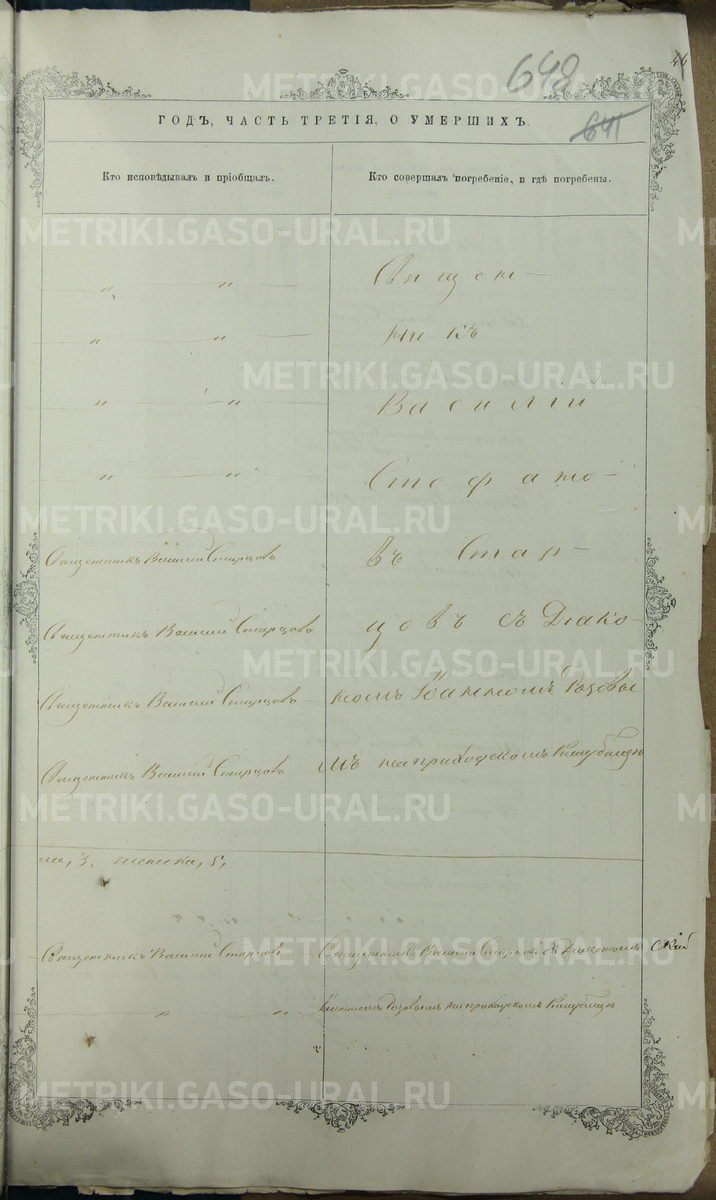 648
641
ГОДЪ, ЧАСТЬ ТРЕТІЯ, О УМЕРШИХЪ.
Кто исповѣдывалъ и пріобщалъ.
Кто совершалъ погребеніе, и гдѣ погребены.
„ „ Священ-
„ „ никъ
„ „ Василій
„ „ Стефано-
Священникъ Василій Старцовъ въ Стар-
Священникъ Василій Старцовъ цовъ съ Діако-
Священникъ Василій Старцовъ номъ Іоанномъ Розовы
Священникъ Василій Старцовъ мъ на приходскомъ Кладбищѣ
3, женска,
Священникъ Василій Старцовъ Священникъ Василій Старцовъ съ Діакономъ
„ „ Іоанномъ Розовымъ на приходскомъ Кладбищѣ
METRIKI.GASO-URAL.RU